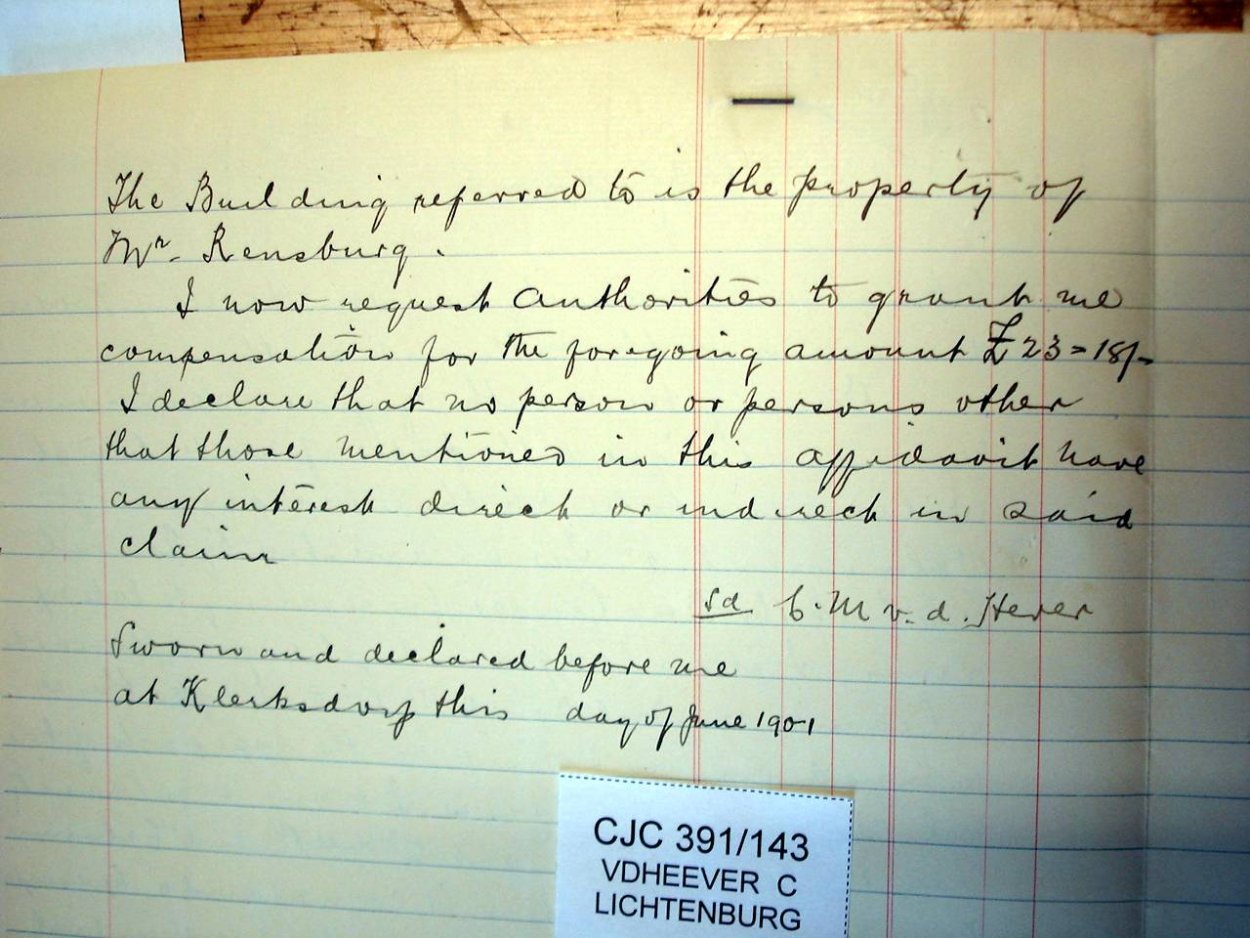 The Building referred to is the property of
Mr. Rensburg.
I now request Authorities to grant me
compensation for the foregoing amount £23=18/-
I declare that no person or persons other
that those mentioned in this affidavit have
any interest direct or indirect in said
claim
sd C. M v. d. Hever
Sworn and declared before me
at Klerksdorp this day of June 1901
CJC 391/143
VDHEEVER C
LICHTENBURG